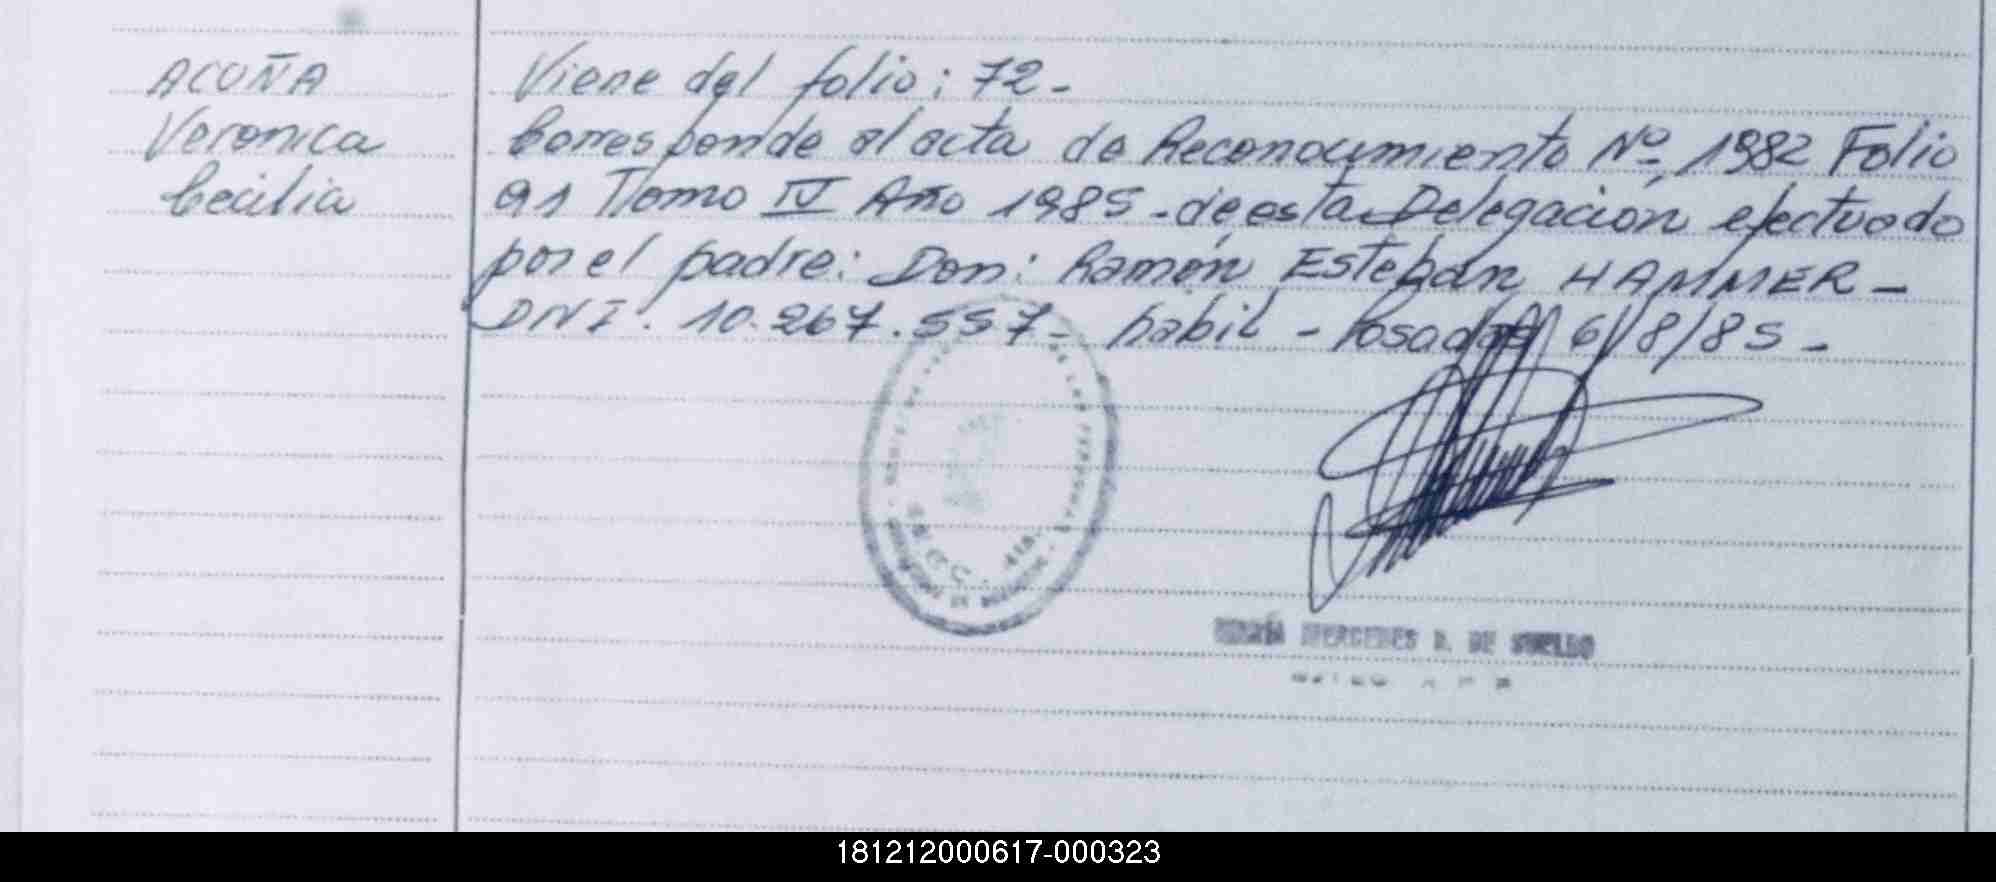 ACUÑA
Veronica
Cecilia
Viene del folio: 72-
Corresponde al acta de Reconocimiento Nº 1982 Folio
91 Tomo IV Año 1985 - de esta Delegación efectuado
por el padre: Don: Ramón Esteban HAMMER-
DNI. 10.267.557- habil - Posadas 6/8/85-
MARÍA MERCEDES R. DE SUELDO
181212000617-000323